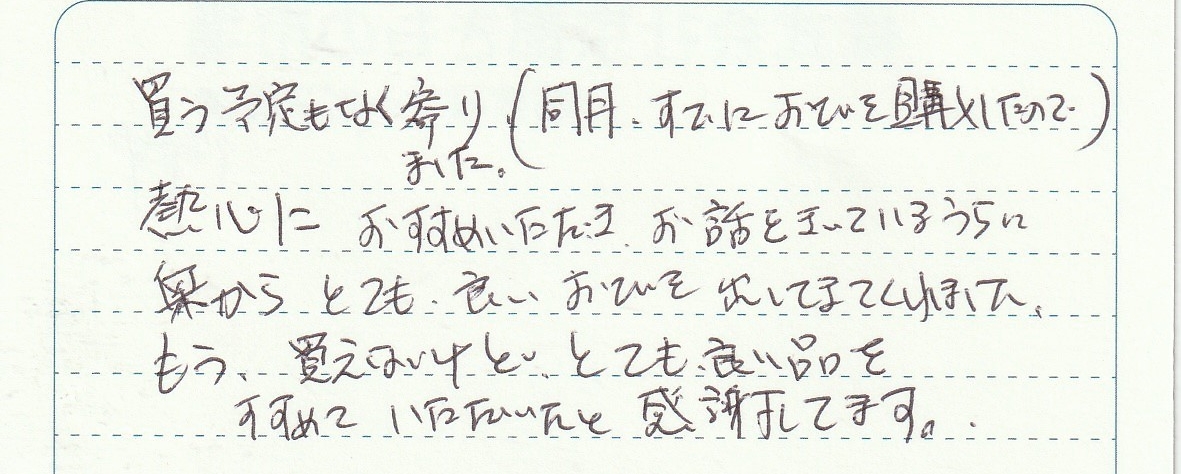 買う予定もなく寄り
ました。(同月、すでにおびを購入したので)
熱心に おすすめいただき、お話をきいているうちに
奥から とても、良い おびを 出してきてくれました、
もう、買えないけど、とても、良い品を
すすめて いただいたと 感謝してます。